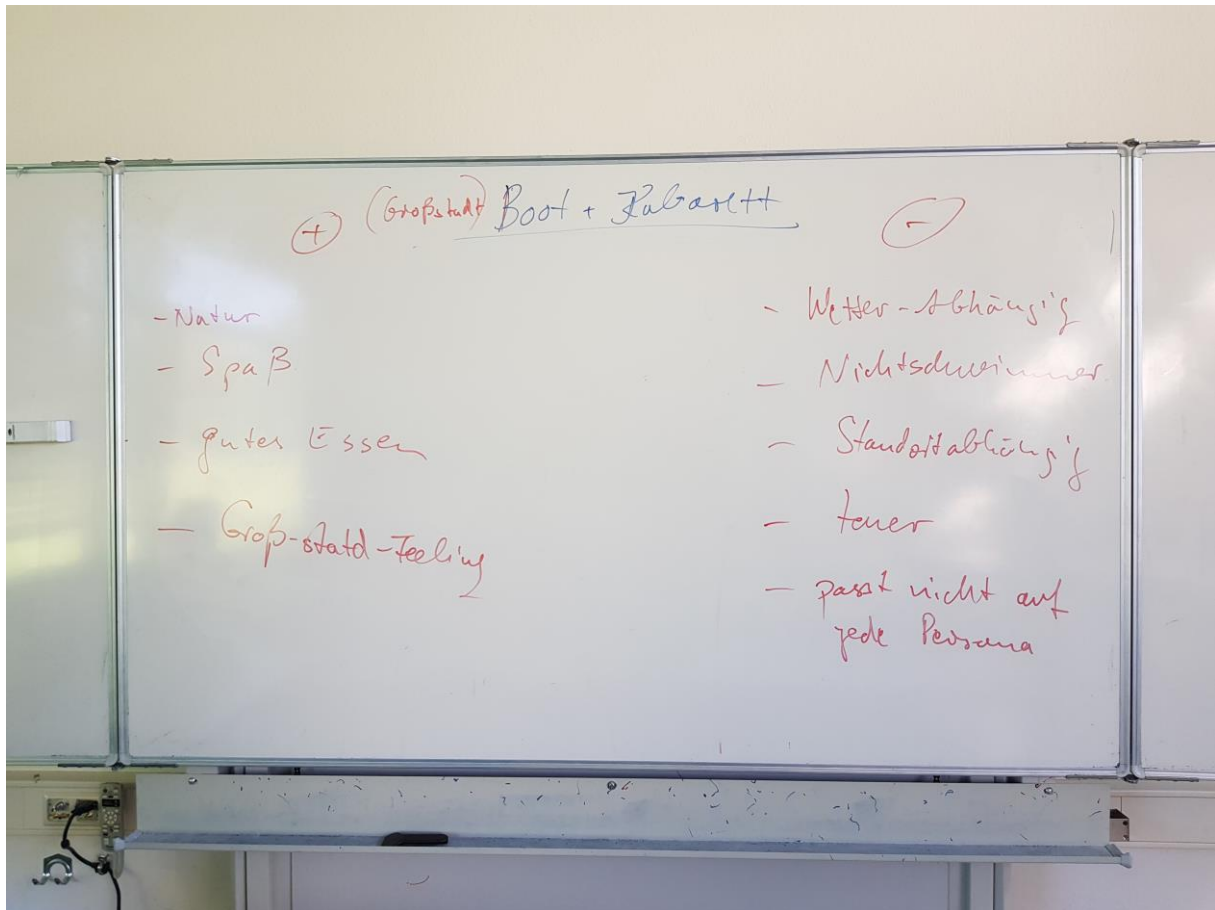 + (Großstadt) Boot + Kabarett -
- Natur
- Spaß
- gutes Essen
- Groß-statd-Feeling
- Wetter-Abhängig
- Nichtschwimmer
- Standortabhängig
- teuer
- passt nicht auf
jede Persona